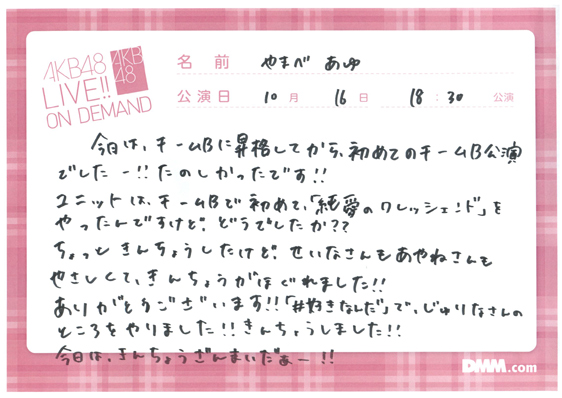 AKB48
LIVE!!
ON DEMAND
AKB
48
名前 やまべ あゆ
公演日 10月 16日 18:30 公演
今日は、チームBに昇格してから、初めてのチームB公演
でしたー!!たのしかったです!!
ユニットは、チームBで初めて、「純愛のクレッシェンド」を
やったんですけど、どうでしたか??
ちょっときんちょうしたけど、せいなさんもあやねさんも
やさしくて、きんちょうがほぐれました!!
ありがとうございます!!「#好きなんだ」で、じゅりなさんの
ところをやりました!!きんちょうしました!!
今日は、きんちょうざんまいだぁー!!
DMM.com